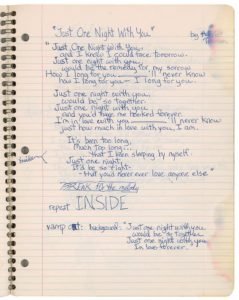 "Just One Night With You" by
Just One Night With You
and I know I could face tomorrow.
Just one night with you
would be the remedy for my sorrow
How I long for you 'll never know
how I long for you I long for you.
Just one night with you,
would be so together.
Just one night with you
and you'd have me hooked forever.
I'm in love with you 'll never know
just how much in love with you, I am.
It's been too long,
Much too long...
that I been sleeping by myself.
Just one night,
It'd be so right
that you'd never love anyone else
BREAK for the melody
repeat INSIDE
vamp out: background: "Just one night with you
would be so together
Just one night with you
in love forever."